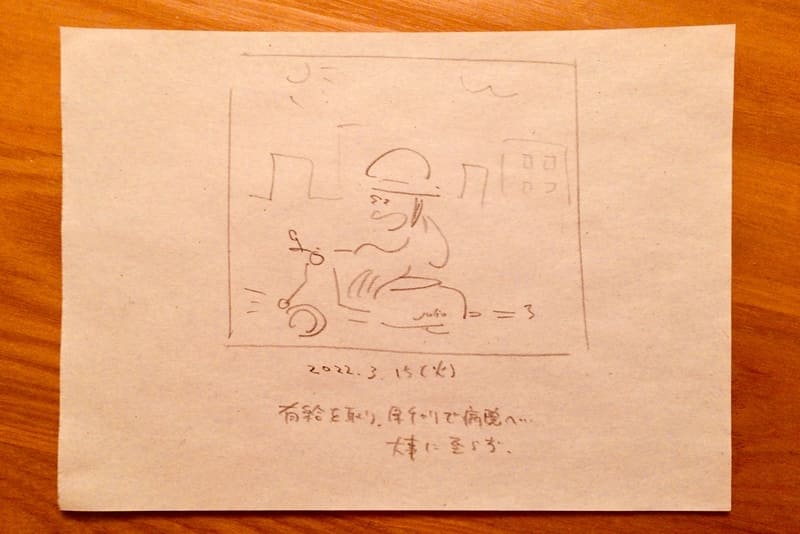 julio
= 3
2022.3.15(火)
有給を取り、原チャリで病院へ…
大事に至らず.